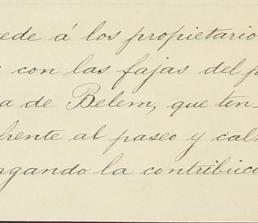 cede á los propietario
con las fajas del p
a de Belem, que ten-
frente al paseo y cal
agando la contribuc